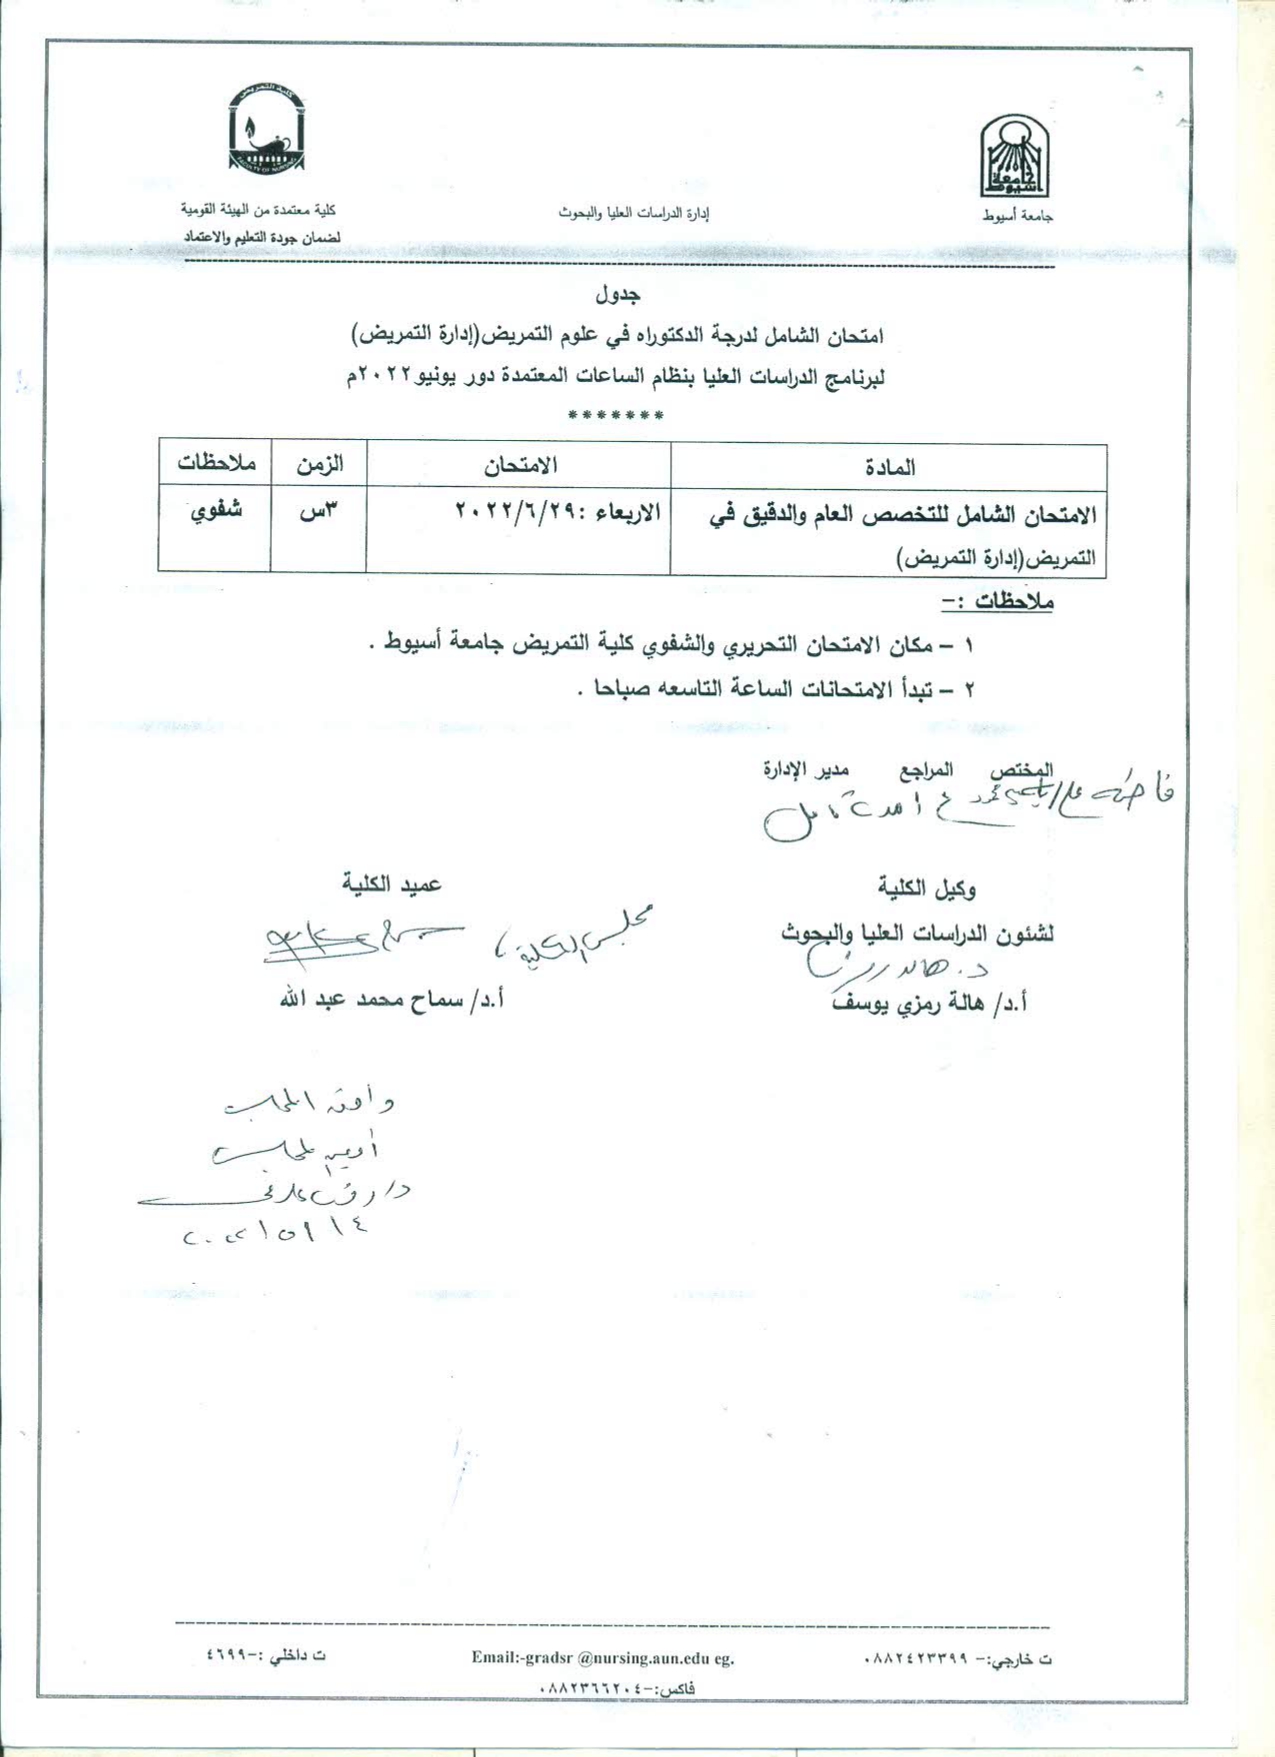 كلية التمريض
FACULTY OF NURSING
جامعة أسيوط
جامعة أسيوط
إدارة الدراسات العليا والبحوث
كلية معتمدة من الهيئة القومية
لضمان جودة التعليم والاعتماد
جدول
امتحان الشامل لدرجة الدكتوراه في علوم التمريض(إدارة التمريض)
لبرنامج الدراسات العليا بنظام الساعات المعتمدة دور يونيو٢٠٢٢م
*******
المادة الامتحان الزمن ملاحظات
الامتحان الشامل للتخصص العام والدقيق في الاربعاء :٢٠٢٢/٦/٢٩ ٣س شفوي
التمريض(إدارة التمريض)
ملاحظات :-
١ – مكان الامتحان التحريري والشفوي كلية التمريض جامعة أسيوط .
٢ – تبدأ الامتحانات الساعة التاسعه صباحا .
المختص المراجع مدير الإدارة
وكيل الكلية عميد الكلية
لشئون الدراسات العليا والبحوث
مجلس الكلية
أ.د/ هالة رمزي يوسف أ.د/ سماح محمد عبد الله
وافق المجلس
أمين المجلس
٢٠٢٢/٥/١٤
ت خارجي:- ٠٨٨٢٤٢٣٣٩٩ Email:-gradsr @nursing.aun.edu eg. ت داخلي :-٤٦٩٩
فاكس:-٠٨٨٢٣٦٦٢٠٤